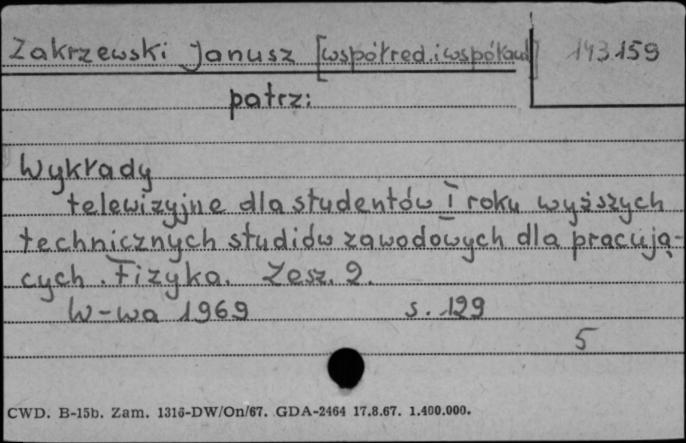 Zakrzewski Janusz [współred. i współaut] 143.159
patrz:
Wykłady
telewizyjne dla studentów I roku wyższych
technicznych studiów zawodowych dla pracują-
cych. Fizyka. Zesz. 2.
W-wa 1969 s. 129
5
CWD. B-15b. Zam. 1316-DW/On/67. GDA-2464 17.8.67. 1.400.000.